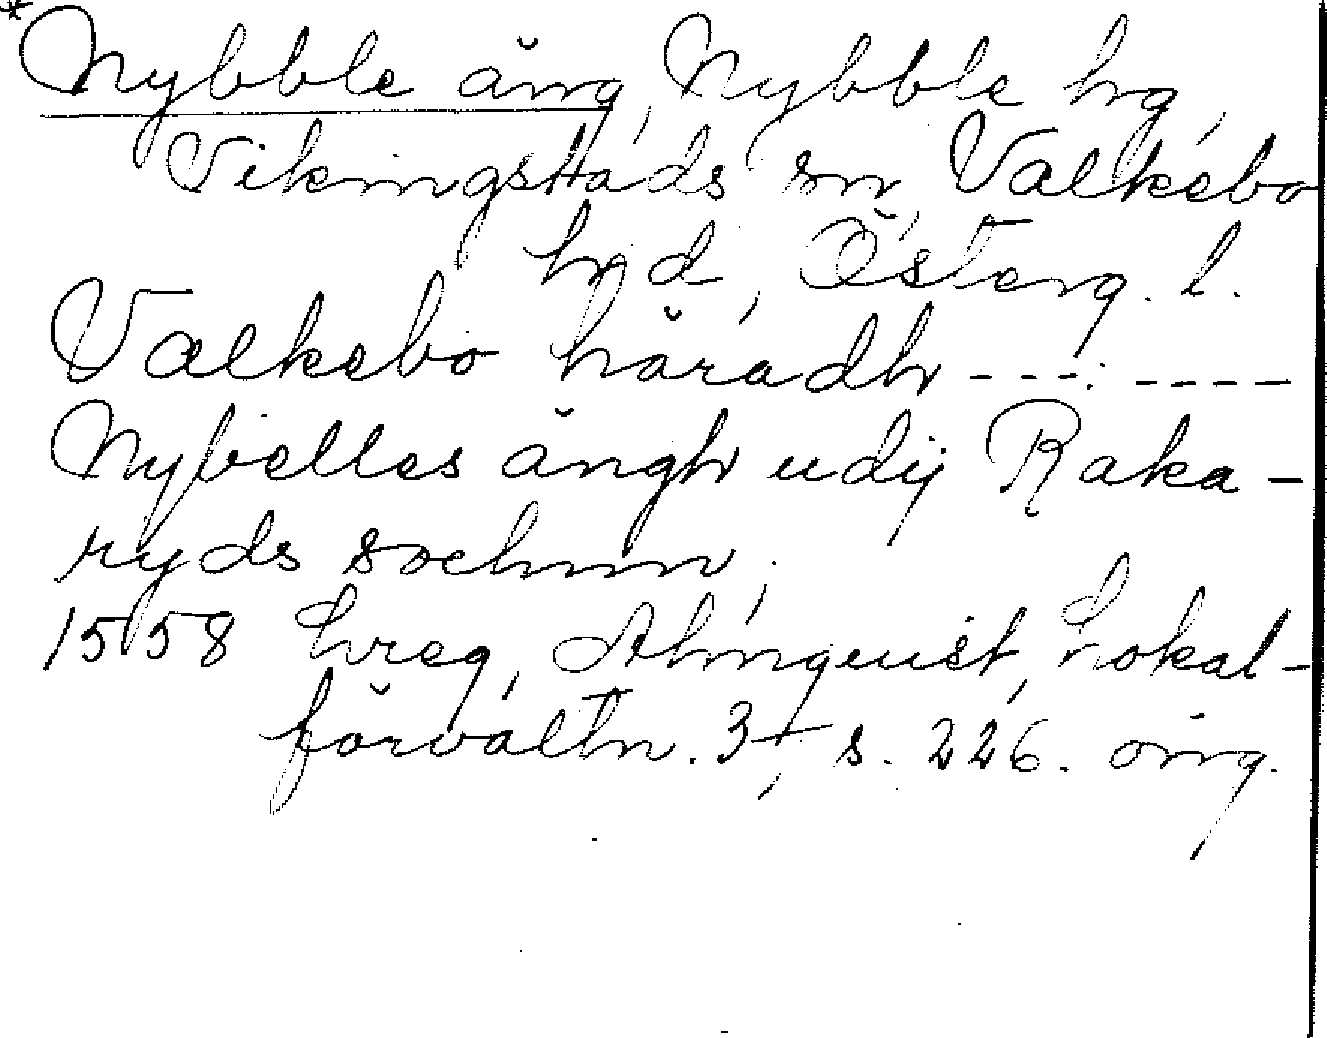 *Nybble äng, Nybble hg,
Vikingstads sn, Valkebo
hd, Österg. l.
Valkebo häradh ---: ----
Nybelles ängh udij Raka-
ryds sochnn,
1558 hreg, Almquist, Lokal-
förvaltn. 3, s. 226. orig.